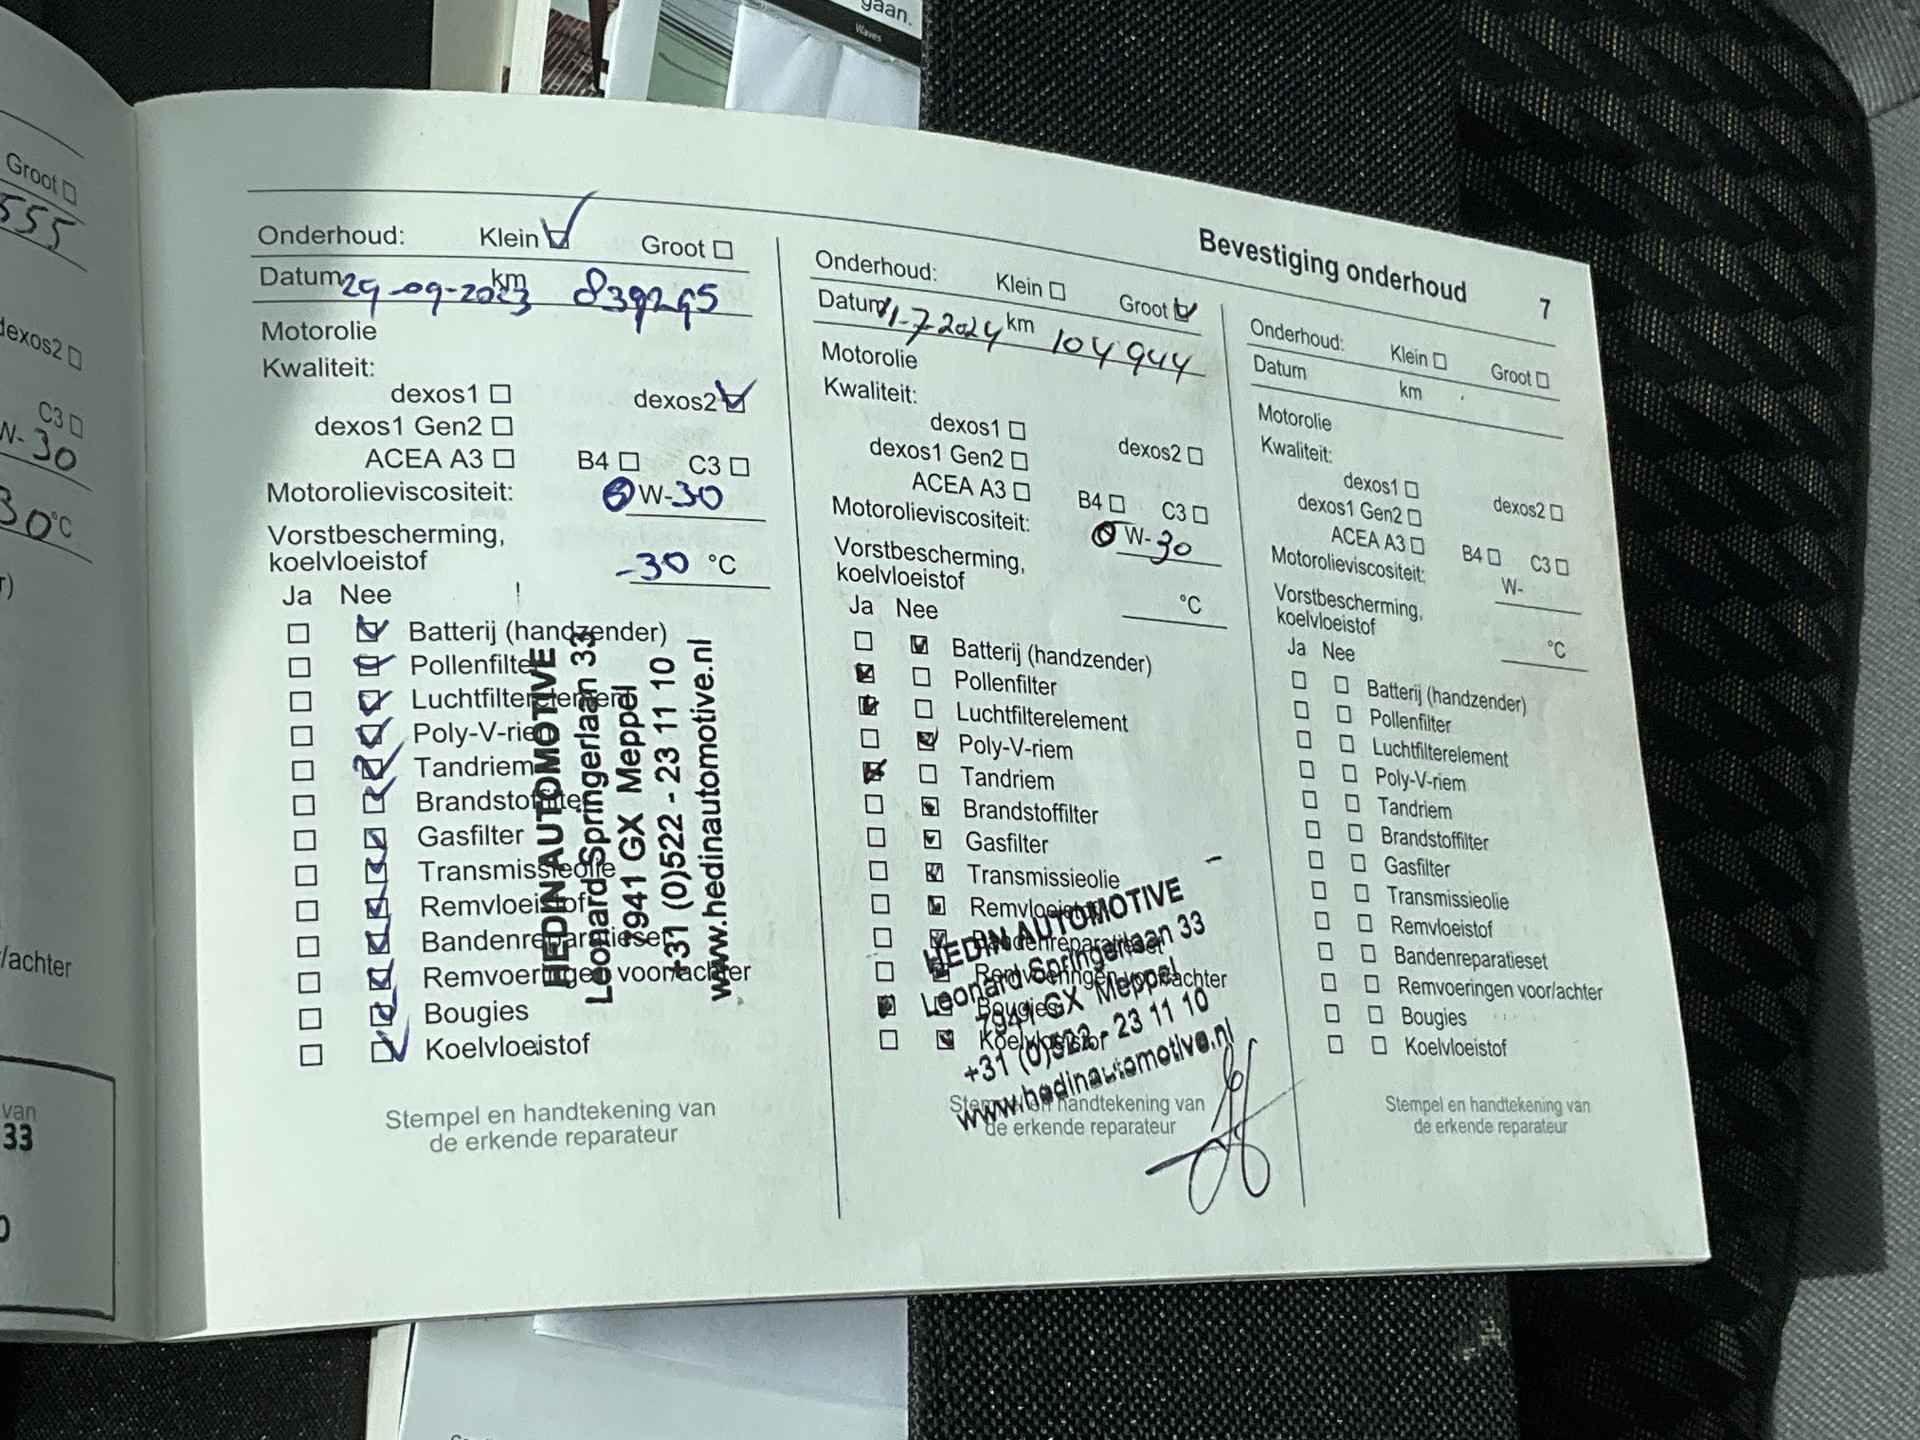 gaan.
Waves
Groot
555
dexos2
C3
W-30
30°C
r)
/achter
van
33
0
Bevestiging onderhoud 7
Onderhoud: Klein Groot
Datum 29-09-2023 km
Motorolie
Kwaliteit:
dexos1 dexos2
dexos1 Gen2
ACEA A3 B4 C3
Motorolieviscositeit: W-30
Vorstbescherming,
koelvloeistof -30 °C
Ja Nee
Batterij (handzender)
Pollenfilter
Luchtfilterelement
Poly-V-riem
Tandriem
Brandstoffilter
Gasfilter
Transmissieolie
Remvloeistof
Bandenreparatieset
Remvoeringen voor/achter
Bougies
Koelvloeistof
HEDIN AUTOMOTIVE
Leonard Springerlaan 33
7941 GX Meppel
+31 (0)522 - 23 11 10
www.hedinautomotive.nl
Stempel en handtekening van
de erkende reparateur
Onderhoud: Klein Groot
Datum 11-7-2024 km 104944
Motorolie
Kwaliteit:
dexos1 dexos2
dexos1 Gen2
ACEA A3 B4 C3
Motorolieviscositeit: 0 W-30
Vorstbescherming,
koelvloeistof °C
Ja Nee
Batterij (handzender)
Pollenfilter
Luchtfilterelement
Poly-V-riem
Tandriem
Brandstoffilter
Gasfilter
Transmissieolie
Remvloeistof
Bandenreparatieset
Remvoeringen voor/achter
Bougies
Koelvloeistof
HEDIN AUTOMOTIVE
Leonard Springerlaan 33
7941 GX Meppel
+31 (0)522 - 23 11 10
www.hedinautomotive.nl
Stempel en handtekening van
de erkende reparateur
Onderhoud: Klein Groot
Datum km
Motorolie
Kwaliteit:
dexos1 dexos2
dexos1 Gen2
ACEA A3 B4 C3
Motorolieviscositeit: W-
Vorstbescherming,
koelvloeistof °C
Ja Nee
Batterij (handzender)
Pollenfilter
Luchtfilterelement
Poly-V-riem
Tandriem
Brandstoffilter
Gasfilter
Transmissieolie
Remvloeistof
Bandenreparatieset
Remvoeringen voor/achter
Bougies
Koelvloeistof
Stempel en handtekening van
de erkende reparateur